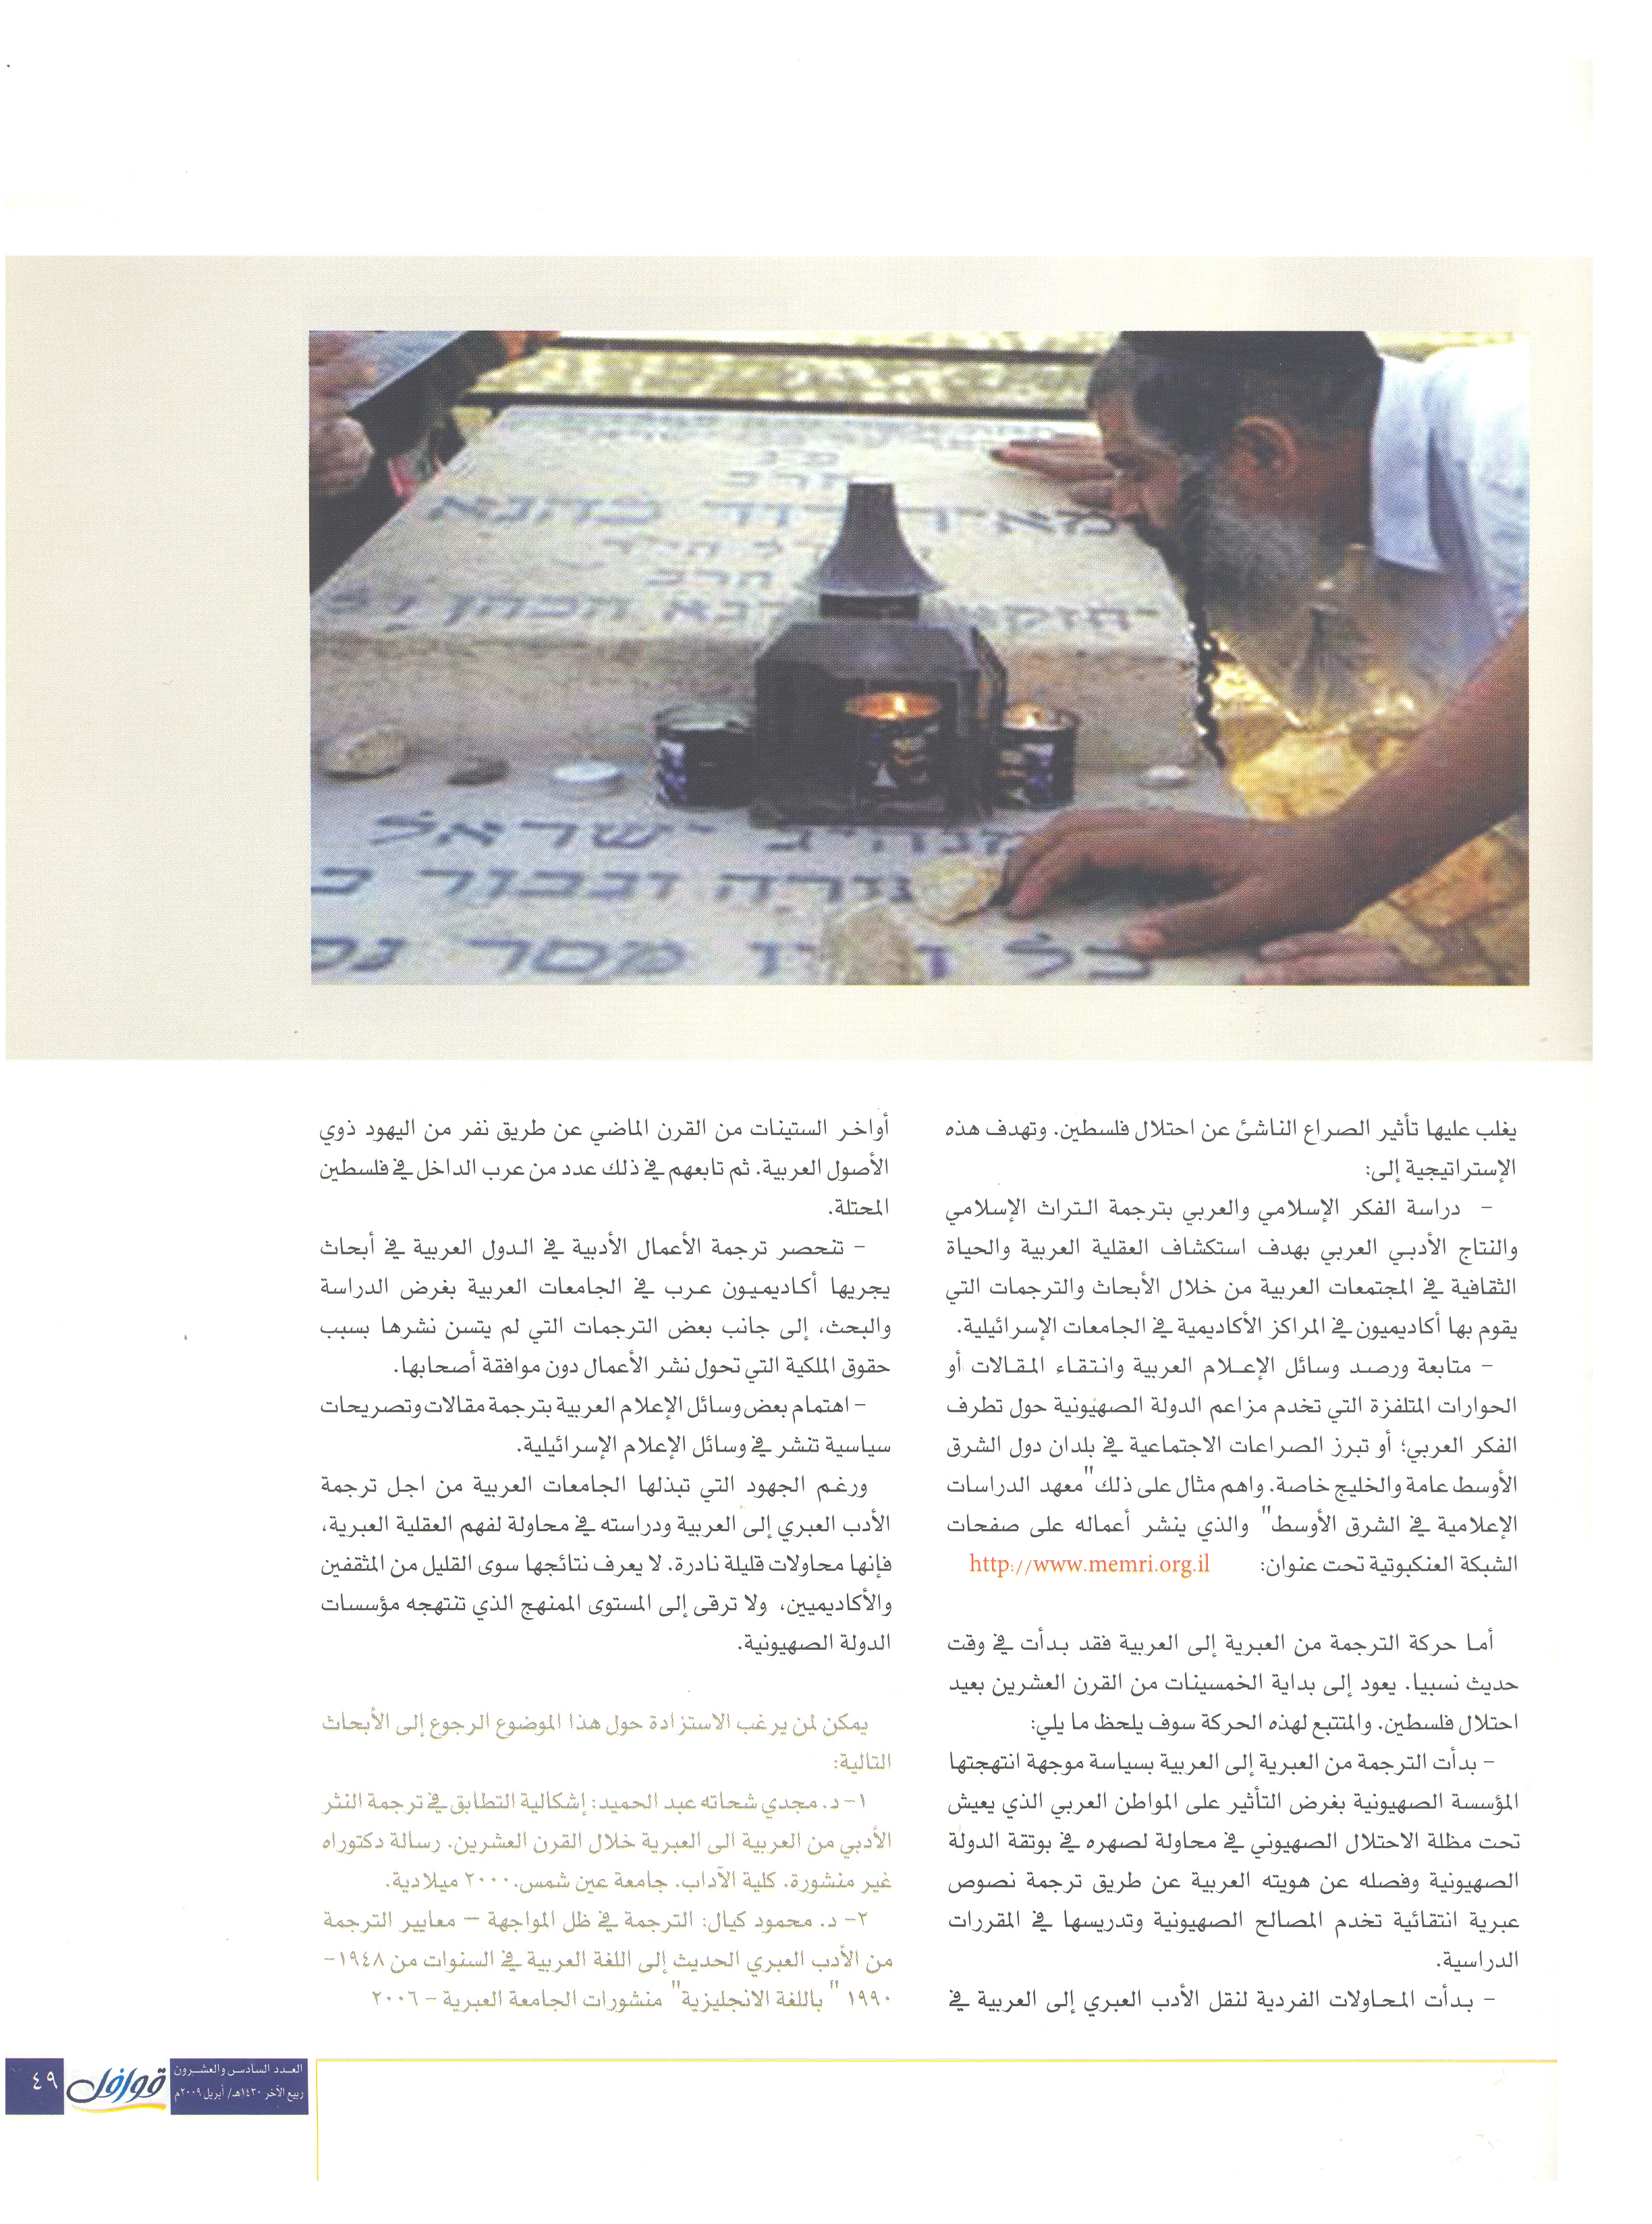 יחזק
הרב
הכהן
ישראל
וגבור
כל
מסר
يغلب عليها تأثير الصراع الناشئ عن احتلال فلسطين. وتهدف هذه
الإستراتيجية إلى:
– دراسة الفكر الإسلامي والعربي بترجمة التراث الإسلامي
والنتاج الأدبي العربي بهدف استكشاف العقلية العربية والحياة
الثقافية في المجتمعات العربية من خلال الأبحاث والترجمات التي
يقوم بها أكاديميون في المراكز الأكاديمية في الجامعات الإسرائيلية.
– متابعة ورصد وسائل الإعلام العربية وانتقاء المقالات أو
الحوارات المتلفزة التي تخدم مزاعم الدولة الصهيونية حول تطرف
الفكر العربي؛ أو تبرز الصراعات الاجتماعية في بلدان دول الشرق
الأوسط عامة والخليج خاصة. واهم مثال على ذلك "معهد الدراسات
الإعلامية في الشرق الأوسط" والذي ينشر أعماله على صفحات
الشبكة العنكبوتية تحت عنوان: http://www.memri.org.il
أما حركة الترجمة من العبرية إلى العربية فقد بدأت في وقت
حديث نسبيا. يعود إلى بداية الخمسينات من القرن العشرين بعيد
احتلال فلسطين. والمتتبع لهذه الحركة سوف يلحظ ما يلي:
– بدأت الترجمة من العبرية إلى العربية بسياسة موجهة انتهجتها
المؤسسة الصهيونية بغرض التأثير على المواطن العربي الذي يعيش
تحت مظلة الاحتلال الصهيوني في محاولة لصهره في بوتقة الدولة
الصهيونية وفصله عن هويته العربية عن طريق ترجمة نصوص
عبرية انتقائية تخدم المصالح الصهيونية وتدريسها في المقررات
الدراسية.
– بدأت المحاولات الفردية لنقل الأدب العبري إلى العربية في
أواخر الستينات من القرن الماضي عن طريق نفر من اليهود ذوي
الأصول العربية. ثم تابعهم في ذلك عدد من عرب الداخل في فلسطين
المحتلة.
– تنحصر ترجمة الأعمال الأدبية في الدول العربية في أبحاث
يجريها أكاديميون عرب في الجامعات العربية بغرض الدراسة
والبحث، إلى جانب بعض الترجمات التي لم يتسن نشرها بسبب
حقوق الملكية التي تحول نشر الأعمال دون موافقة أصحابها.
– اهتمام بعض وسائل الإعلام العربية بترجمة مقالات وتصريحات
سياسية تنشر في وسائل الإعلام الإسرائيلية.
ورغم الجهود التي تبذلها الجامعات العربية من اجل ترجمة
الأدب العبري إلى العربية ودراسته في محاولة لفهم العقلية العبرية،
فإنها محاولات قليلة نادرة. لا يعرف نتائجها سوى القليل من المثقفين
والأكاديميين، ولا ترقى إلى المستوى الممنهج الذي تنتهجه مؤسسات
الدولة الصهيونية.
يمكن لمن يرغب الاستزادة حول هذا الموضوع الرجوع إلى الأبحاث
التالية:
١– د. مجدي شحاته عبد الحميد: إشكالية التطابق في ترجمة النثر
الأدبي من العربية الى العبرية خلال القرن العشرين. رسالة دكتوراه
غير منشورة. كلية الآداب. جامعة عين شمس. ٢٠٠٠ ميلادية.
٢– د. محمود كيال: الترجمة في ظل المواجهة – معايير الترجمة
من الأدب العبري الحديث إلى اللغة العربية في السنوات من ١٩٤٨–
١٩٩٠ " باللغة الانجليزية" منشورات الجامعة العبرية – ٢٠٠٦
العدد السادس والعشرون
ربيع الآخر ١٤٣٠هـ/ أبريل ٢٠٠٩م
قوافل
٤٩